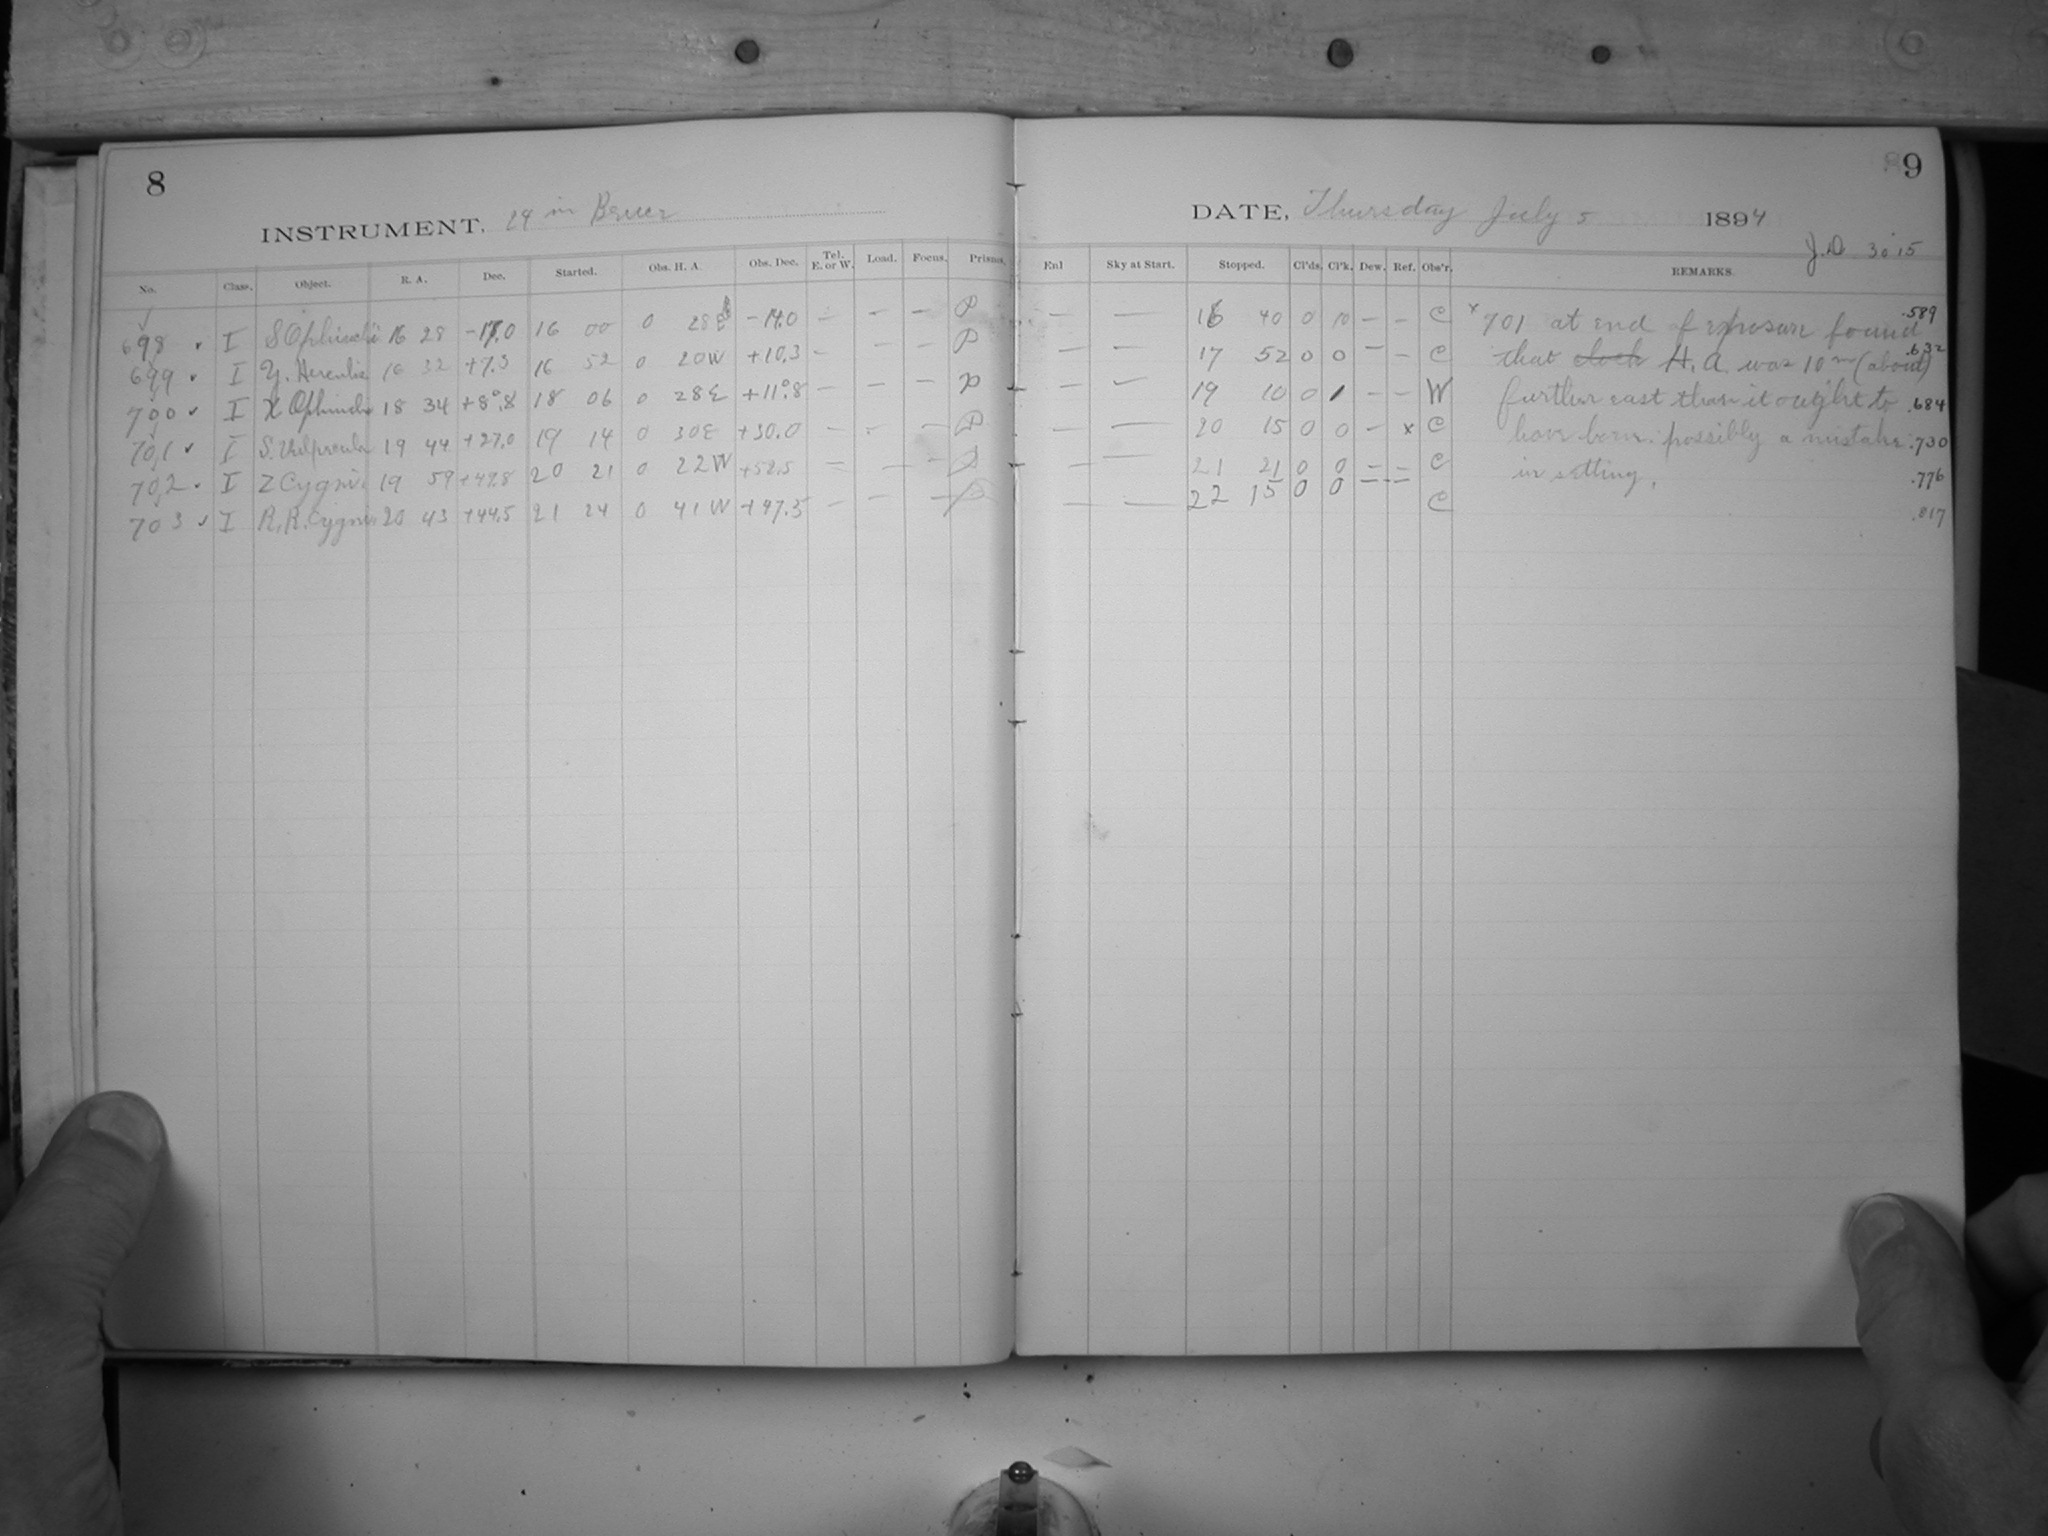 8
INSTRUMENT, 24 in Bruce
No. Class. Object. R. A. Dec. Started. Obs. H. A. Obs. Dec. Tel. E. or W. Load. Focus. Prisms.
698 I S Ophiuchi 16 28 -17.0 16 00 0 28 E -14.0 — — — P
699 I Y. Herculis 16 32 +7.3 16 52 0 20 W +10.3 — — — P
700 I X Ophiuchi 18 34 +8°.8 18 06 0 28 E +11°.8 — — — P
701 I S. Vulpecula 19 44 +27.0 19 14 0 30 E +30.0 — — — P
702 I Z Cygni 19 59 +49.8 20 21 0 22 W +52.5 — — —
703 I R.R. Cygni 20 43 +44.5 21 24 0 41 W +47.5 — — —
89
DATE, Thursday July 5 1894
J.D. 3015
Enl Sky at Start. Stopped. Cl'ds. Cl'k. Dew. Ref. Obs'r. REMARKS.
— — 16 40 0 10 — — C x 701 at end of exposure found .589
— — 17 52 0 0 — — C that clock H.A. was 10 m (about) .632
— — 19 10 0 1 — — W further east than it ought to .684
— — 20 15 0 0 — x C have been: possibly a mistake .730
— — 21 21 0 0 — — C in setting. .776
— — 22 15 0 0 — — C .817